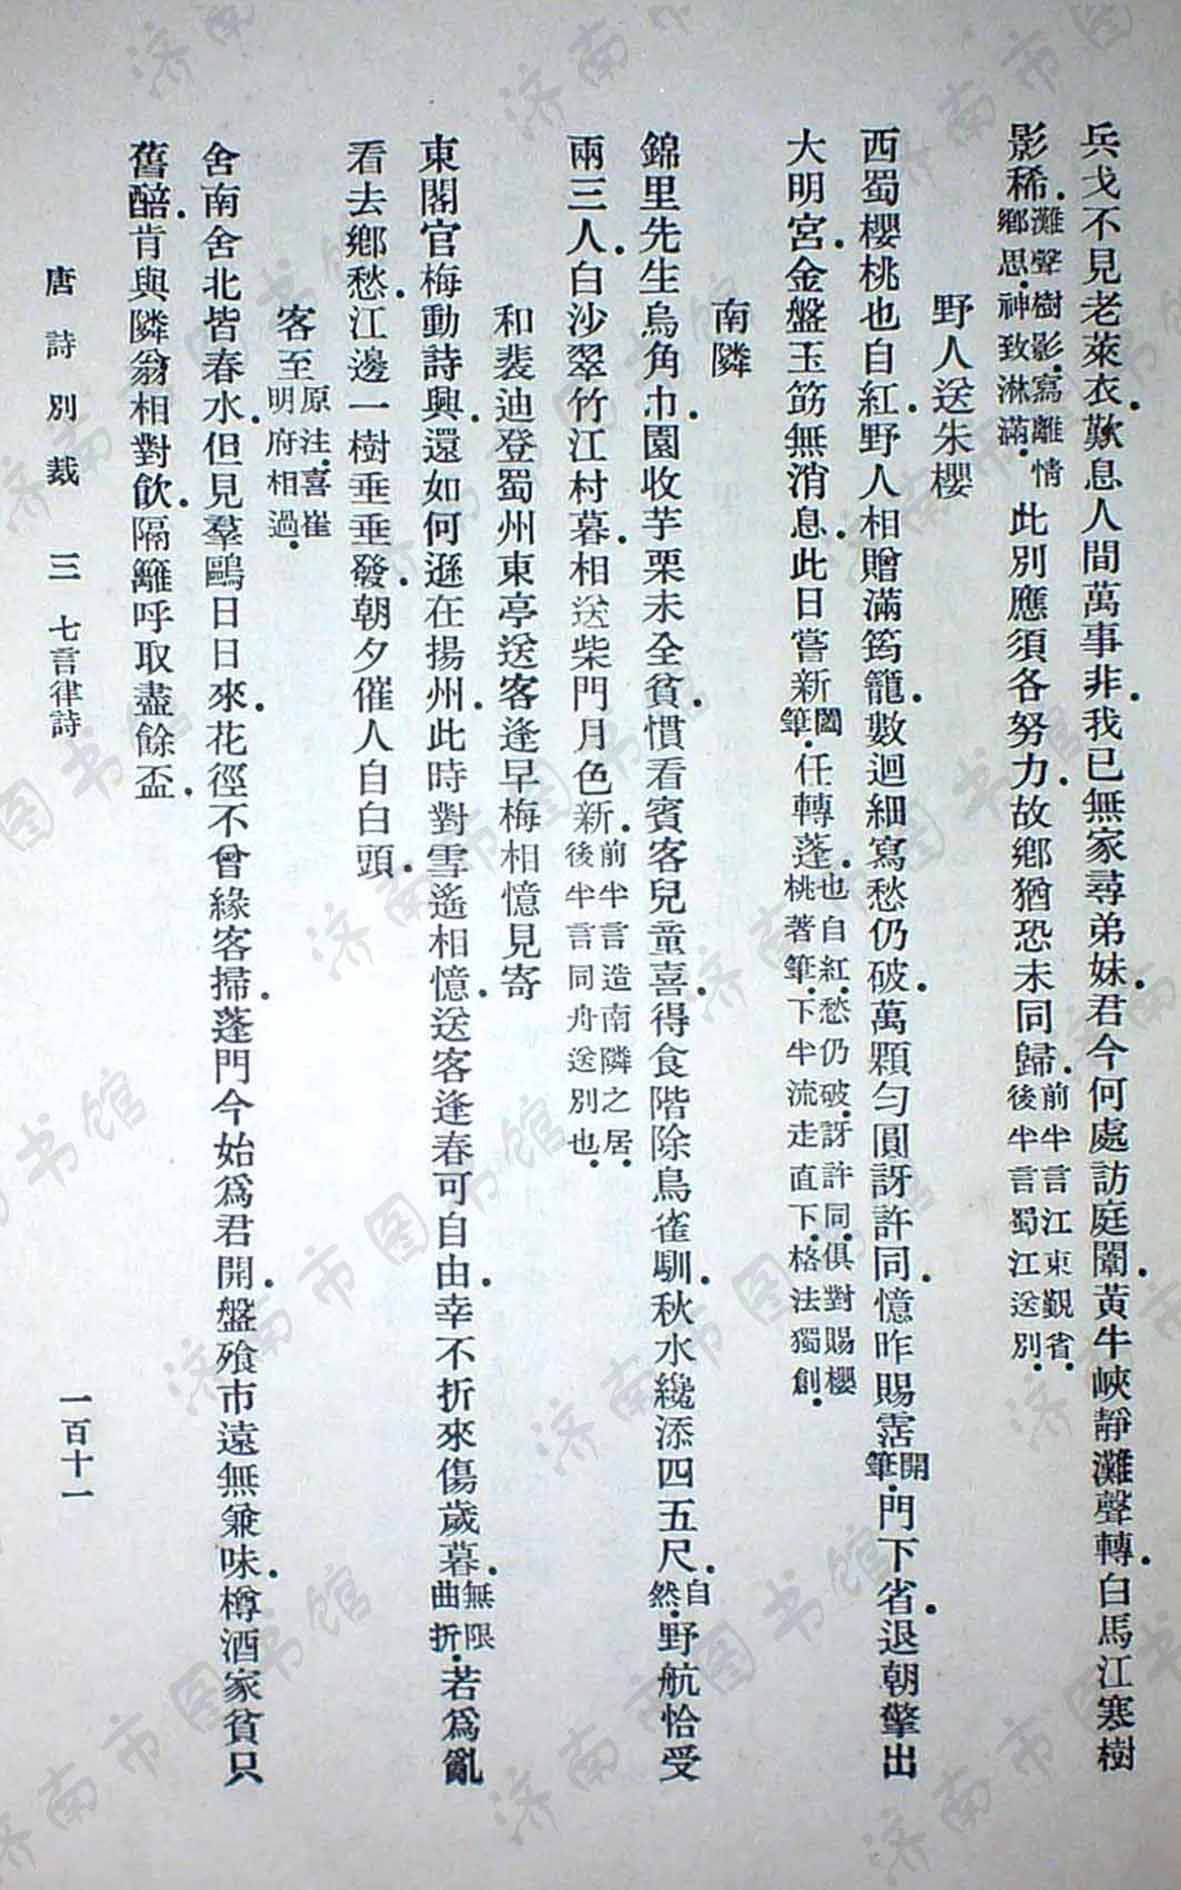 兵戈不見老萊衣.歎息人間萬事非.我已無家尋弟妹.君今何處訪庭闈.黃牛峽靜灘聲轉.白馬江寒樹
影稀.灘聲樹影.寫離情鄉思.神致淋滿.此別應須各努力.故鄉猶恐未同歸.前半言江東覲省.後半言蜀江送別.
野人送朱櫻
西蜀櫻桃也自紅.野人相贈滿筠籠.數迴細寫愁仍破.萬顆勻圓訝許同.憶昨賜霑開筆.門下省.退朝擎出
大明宮.金盤玉筯無消息.此日嘗新闔筆.任轉蓬.也自紅.愁仍破.訝許同.俱對賜櫻桃著筆.下半流走直下.格法獨創.
南隣
錦里先生烏角巾.園收芋栗未全貧.慣看賓客兒童喜.得食階除鳥雀馴.秋水纔添四五尺.自然.野航恰受
兩三人.白沙翠竹江村暮.相送柴門月色新.前半言造南隣之居.後半言同舟送別也.
和裴迪登蜀州東亭送客逢早梅相憶見寄
東閣官梅動詩興.還如何遜在揚州.此時對雪遙相憶.送客逢春可自由.幸不折來傷歲暮.無限曲折.若爲亂
看去鄉愁.江邊一樹垂垂發.朝夕催人自白頭.
客至原注.喜崔明府相過.
舍南舍北皆春水.但見羣鷗日日來.花徑不曾緣客掃.蓬門今始爲君開.盤飧市遠無兼味.樽酒家貧只
舊醅.肯與隣翁相對飲.隔籬呼取盡餘盃.
唐詩別裁 三 七言律詩 一百十一
济南市图书馆